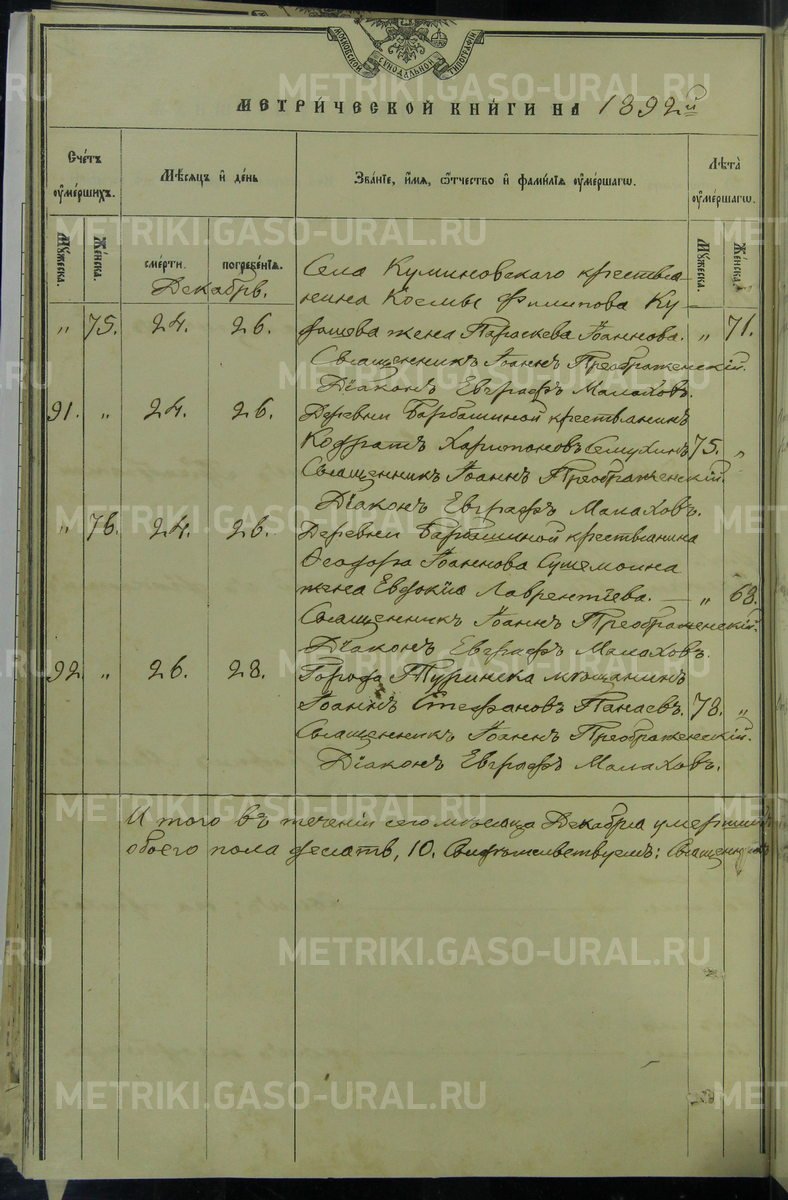 МОСКОВСКОЙ СѴНОДАЛЬНОЙ ТИПОГРАФІИ
МЕТРИ́ЧЕСКОЙ КНИ́ГИ НА 1892й
Сче́тъ ᲂу҆ме́ршихъ.
Мѣсяцъ и҆ де́нь
Зва́нїе, и҆́мѧ, ѻ҆́тчество и҆ фами́лїѧ ᲂу҆ме́ршагѡ.
Лѣ́та ᲂу҆ме́ршагѡ.
Мꙋ́жеска.
Же́нска.
сме́рти.
погребе́нїѧ.
Мꙋ́жеска.
Же́нска.
Декабрь.
Села Куминовскаго крестья-
нина Космы Филипова Ку-
„ 75. 24. 26. жена Параскева Іоаннова. „ 71.
Священникъ Іоаннъ Преображенскій.
Діаконъ Евграфъ Малаховъ.
91. „ 24. 26. Деревни Барбашиной крестьянинъ
Кодратъ Харитоновъ Семухинъ 75. „
Священникъ Іоаннъ Преображенскій.
Діаконъ Евграфъ Малаховъ.
„ 76. 24. 26. Деревни крестьянина
Ѳеодора Іоаннова
жена Евдокіа Лаврентіева. — „ 68.
Священникъ Іоаннъ Преображенскій.
Діаконъ Евграфъ Малаховъ.
92. „ 26. 28. Города Туринска мѣщанинъ
Іоаннъ Стефановъ Панаевъ. 78. „
Священникъ Іоаннъ Преображенскій.
Діаконъ Евграфъ Малаховъ.
Итого въ теченіи сего мѣсяца Декабря умершихъ
обоего пола десять, 10. Свидѣтельствуемъ: Священникъ
METRIKI.GASO-URAL.RU